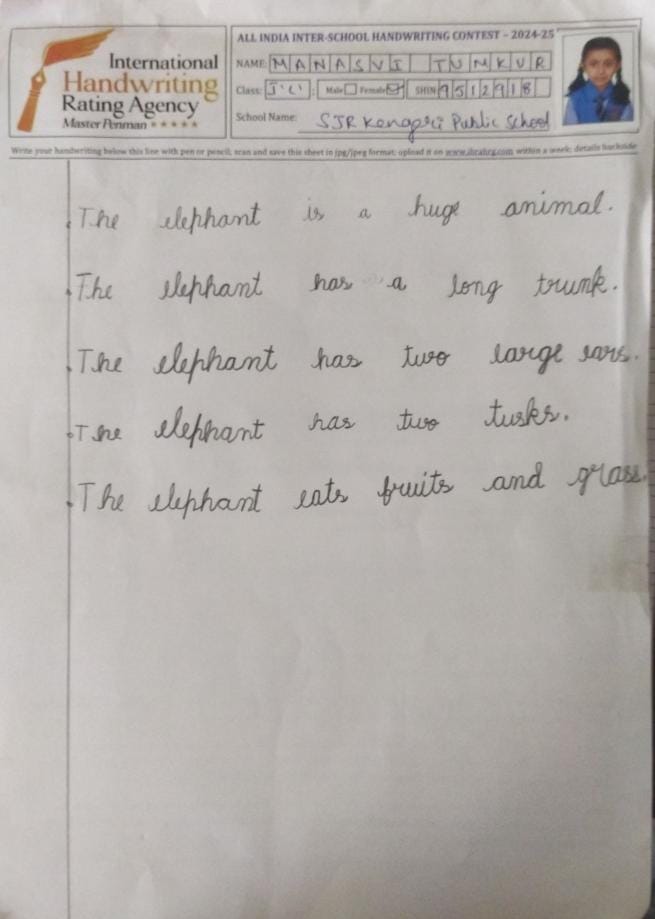 International
Handwriting
Rating Agency
Master Penman ★★★★★
ALL INDIA INTER-SCHOOL HANDWRITING CONTEST – 2024-25
NAME: MANASVI TUMKUR
Class: I 'C' Male Female SHIN 9512918
School Name: SJR Kengeri Public School
Write your handwriting below this line with pen or pencil, scan and save this sheet in jpg/jpeg format; upload it on www.ihrahrg.com within a week; details backside
The elephant is a huge animal.
The elephant has a long trunk.
The elephant has two large ears.
The elephant has two tusks.
The elephant eats fruits and grass.